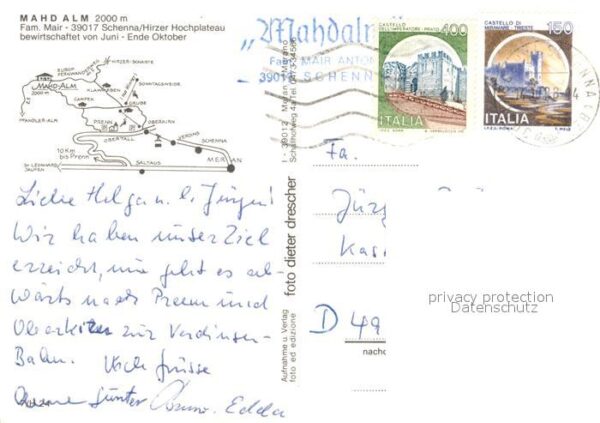 MAHD ALM 2000 m
Fam. Mair - 39017 Schenna/Hirzer Hochplateau
bewirtschaftet von Juni - Ende Oktober
HIRZER-SCHARTE
MAHD-ALM
2000 m
GRUBE
PRENN
OBERKIRN
OBERTALL
VERDINS
SCHENNA
10 Km
bis Prenn
MERAN
SALTAUS
ST. LEONHARD
JAUFEN
"Mahdalm"
Fam. MAIR ANTON
39017 SCHENNA
CASTELLO
DELL'IMPERATORE - PRATO
400
ITALIA
CASTELLO DI
MIRAMARE - TRIESTE
150
ITALIA
Liebe Helga u. l. Jürgen!
Wir haben unser Ziel
erreicht, nun geht es ab-
wärts nach Prenn und
zur Verdinser-
Bahn. Viele Grüsse
Günter Edda
I - 39012 Meran - Merano
foto dieter drescher
Aufnahme u. Verlag
foto ed edizione
Fa.
Jürg
Kas
D 49
nachd
privacy protection
Datenschutz